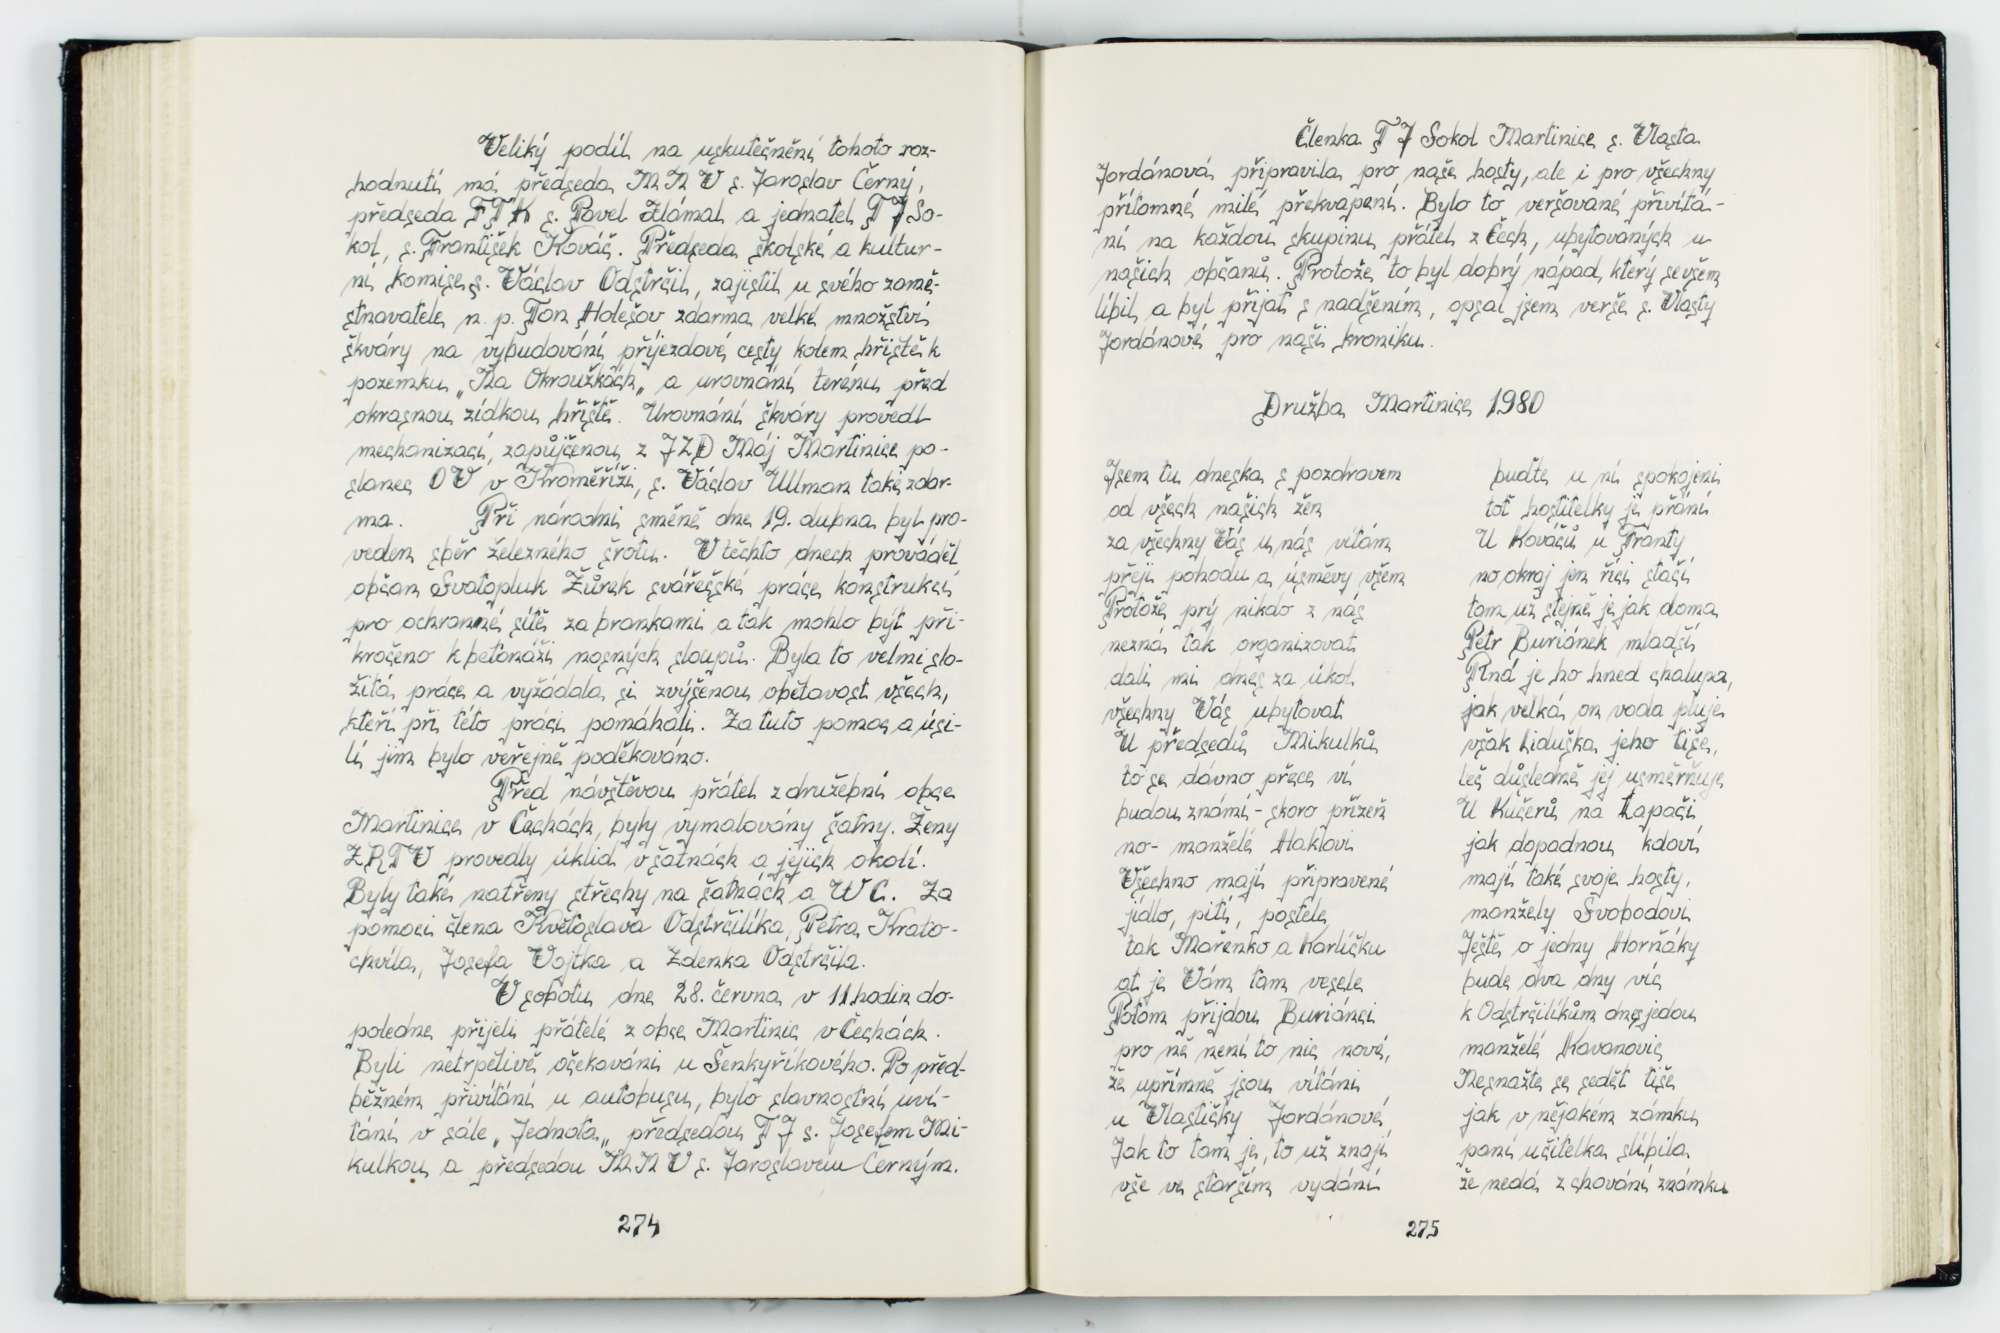 Veliký podíl na uskutečnění tohoto roz-
hodnutí má předseda MNV s. Jaroslav Černý,
předseda FTK s. Pavel Zlámal a jednatel TJ So-
kol, s. František Kováč. Předseda školské a kultur-
ní komise s. Václav Odstrčil, zajistil u svého zamě-
stnavatele n. p. Ton Holešov zdarma velké množství
škváry na vybudování příjezdové cesty kolem hřiště k
pozemku „Na Okroužkách„ a urovnání terénu před
okrasnou zídkou hřiště. Urovnání škváry provedl
mechanizací, zapůjčenou z JZD Máj Martinice po-
slanec OV v Kroměříži, s. Václav Ullman také zdar-
ma. Při národní směně dne 19. dubna byl pro-
veden sběr železného šrotu. V těchto dnech prováděl
občan Svatopluk Žůrek svářečské práce konstrukcí
pro ochranné sítě za brankami a tak mohlo být při-
kročeno k betonáži nosných sloupů. Byla to velmi slo-
žitá práce a vyžádala si zvýšenou obětavost všech,
kteří při této práci pomáhali. Za tuto pomoc a úsi-
lí jim bylo veřejně poděkováno.
Před návštěvou přátel z družební obce
Martinice v Čechách, byly vymalovány šatny. Ženy
ZRTV provedly úklid v šatnách a jejich okolí.
Byly také natřeny střechy na šatnách a WC. Za
pomoci člena Květoslava Odstrčilíka, Petra Krato-
chvíla, Josefa Vojtka a Zdenka Odstrčila.
V sobotu dne 28. června v 11 hodin do-
poledne přijeli přátelé z obce Martinic v Čechách.
Byli netrpělivě očekáváni u Šenkyříkového. Po před-
běžném přivítání u autobusu, bylo slavnostní uví-
tání v sále „Jednota„ předsedou TJ s. Josefem Mi-
kulkou a předsedou MNV s. Jaroslavem Černým.
274
Členka TJ Sokol Martinice s. Vlasta
Jordánová připravila pro naše hosty, ale i pro všechny
přítomné milé překvapení. Bylo to veršované přivítá-
ní na každou skupinu přátel z Čech, ubytovaných u
našich občanů. Protože to byl dobrý nápad, který se všem
líbil a byl přijat s nadšením, opsal jsem verše s. Vlasty
Jordánové pro naši kroniku.
Družba Martinice 1980
Jsem tu dneska s pozdravem
od všech našich žen
za všechny Vás u nás vítám
přeji pohodu a úsměvy všem
Protože prý nikdo z nás
nezná tak organizovat
dali mi dnes za úkol
všechny Vás ubytovat
U předsedů Mikulků
to se dávno přece ví
budou známí - skoro přízeň
no - manželé Haklovi
Všechno mají připravené
jídlo, pití, postele
tak Mařenko a Karlíčku
ať je Vám tam vesele
Potom přijdou Buriánci
pro ně není to nic nové,
že upřímně jsou vítáni
u Vlastičky Jordánové,
Jak to tam je, to už znají
vše ve starším vydání
buďte u ní spokojeni
toť hostitelky je přání
U Kováčů u Franty
no okraj jen říci stačí
tam už stejně je jak doma
Petr Buriánek mladší
Plná je ho hned chalupa,
jak velká on voda pluje
však Liduška jeho tiše,
leč důsledně jej usměrňuje
U Kučerů na Lapači
jak dopadnou kdoví
mají také svoje hosty,
manžely Svobodovi
Ještě o jedny Horňáky
bude dva dny víc
k Odstrčilíkům dnes jedou
manželé Kavanovic
Nesnažte se sedět tiše
jak v nějakém zámku
paní učitelka slíbila
že nedá z chování známku
275